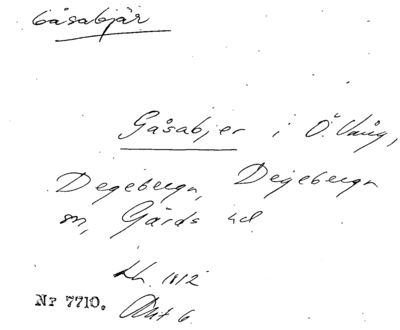 Gåsabjär
Gåsabjer i Ö. Vång,
Degeberga, Degeberga
sn, Gärds hd
Lh. 1812
Nr 7710. Akt 6